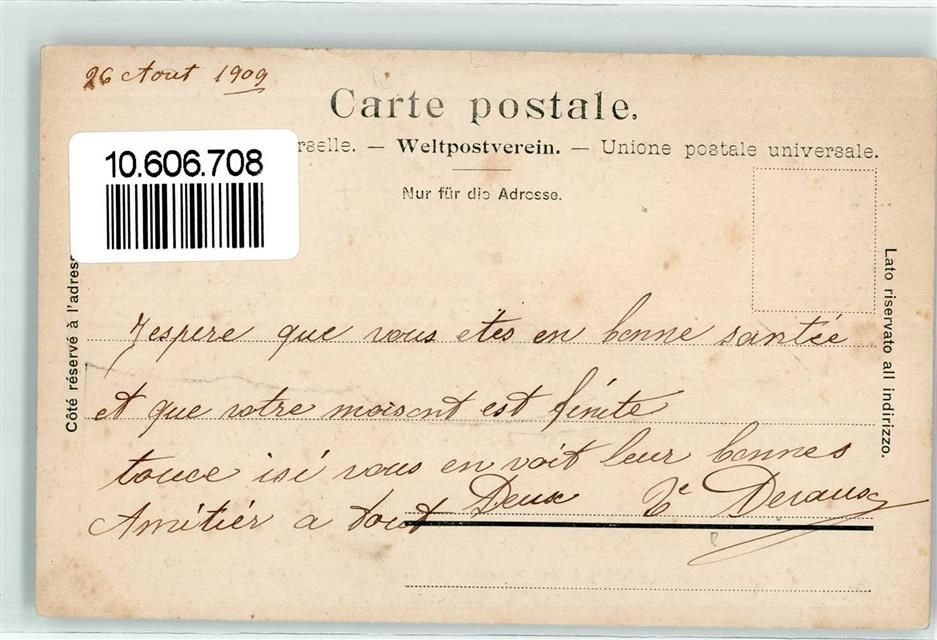 26 Aout 1909
Carte postale.
rselle. — Weltpostverein. — Unione postale universale.
Nur für die Adresse.
10.606.708
Côté réservé à l'adress
Lato riservato all indirizzo.
J'espere que vous etes en bonne santée
et que votre moisont est finite
touce isi vous en voit leur bonnes
Amitiér a tout Deux